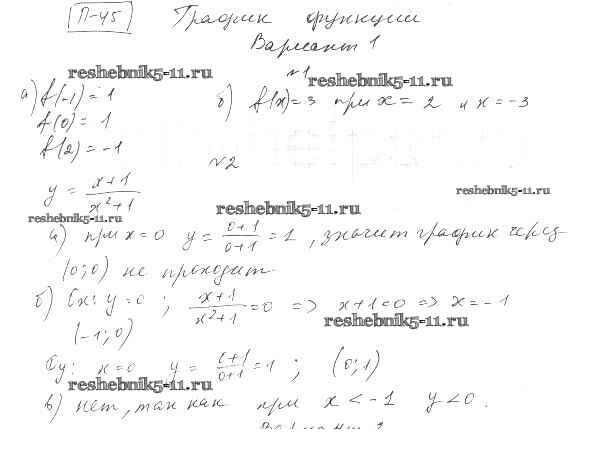 П-45 График функции
Вариант 1
reshebnik5-11.ru
№1
reshebnik5-11.ru
а) f(-1) = 1
б) f(x) = 3 при x = 2 и x = -3
f(0) = 1
f(2) = -1
№2
y = (x+1)/(x²+1)
reshebnik5-11.ru
reshebnik5-11.ru
reshebnik5-11.ru
а) при x=0 y = (0+1)/(0+1) = 1, значит график через
(0;0) не проходит.
б) Ox: y=0 ; (x+1)/(x²+1) = 0 => x+1=0 => x = -1
reshebnik5-11.ru
(-1; 0)
Oy: x=0 y = /(0+1) = 1 ; (0; 1)
reshebnik5-11.ru
в) нет, так как при x < -1 y < 0.